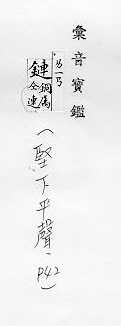 彙音寶鑑
ㄌㄧㄢ
鏈銅屬
仝連
(堅下平聲、P42)